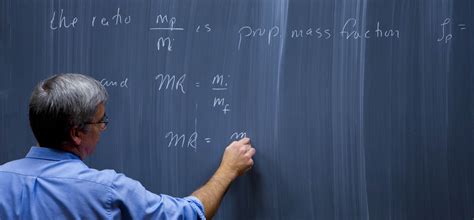 the ratio m_p/m_i is prop. mass fraction ζ_p =
and MR = m_i/m_f
MR = m